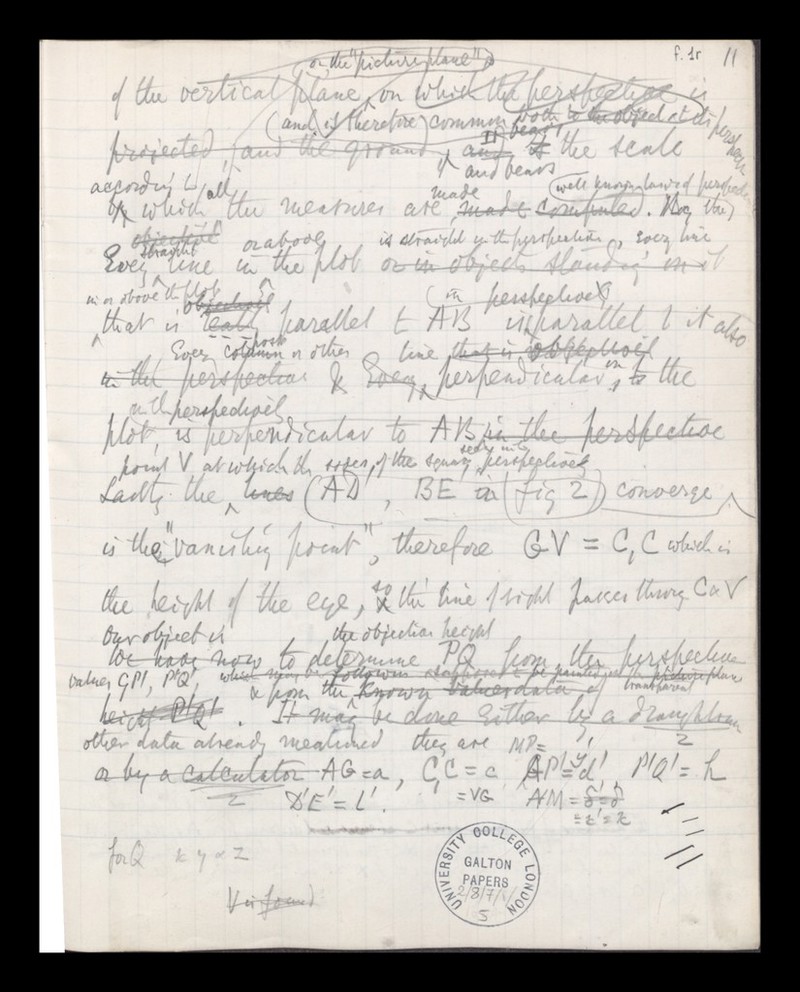 f. 1r 11
or the "picture plane"
of the vertical plane, on which the perspective is
(and is therefore) common both to the object & its perspective
projected, and the ground, and the scale
and bears
according to all made well known laws of perspective
by which the measures are made computed.
objective straight or above is straight in the perspective, every line
Every line in the plot or in objects standing on it
in or above the plot objective (in perspective)
that is really parallel to AB is parallel to it also
Every column post or other line that is objective
in the perspective & Every perpendicular in to the
in the perspective
plot, is perpendicular to AB in the perspective
point V at which the sides of the square seen in perspective
Lastly the lines (AD, BE in (fig 2) converge
is the "vanishing point", therefore GV = C,C which is
the height of the eye, so & the line of sight passes through C & V
Our object is the objective height
We have now to determine PQ from the perspective
values GP', P'Q', which may be
& from the known values data of transparent
height P'Q'. It may be done either by a draughtsman
other data already mentioned they are MP =
or by a calculator AG = a, C,C = c GP' = d' P'Q' = h
2 D'E' = L'. = VG AM =
for Q x y & z
V is found
UNIVERSITY COLLEGE LONDON
GALTON
PAPERS
2/8/7/1/
5